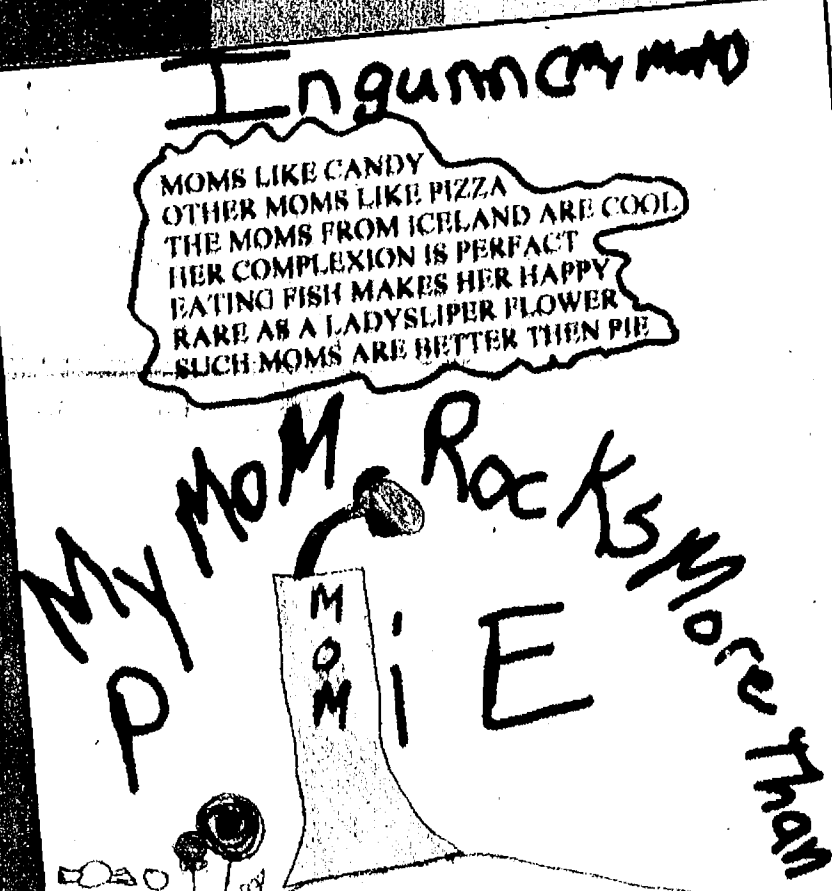 Ingunn (My MoM)
MOMS LIKE CANDY
OTHER MOMS LIKE PIZZA
THE MOMS FROM ICELAND ARE COOL
HER COMPLEXION IS PERFACT
EATING FISH MAKES HER HAPPY
RARE AS A LADYSLIPER FLOWER
SUCH MOMS ARE BETTER THEN PIE
My MoM Rocks More Than
PiE
MOM